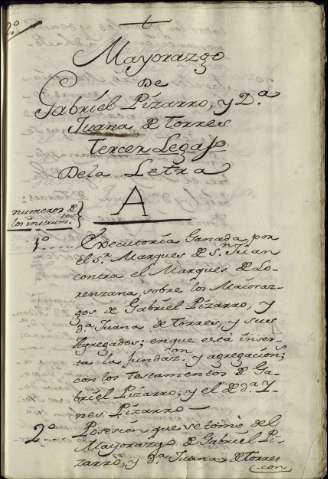 2º
t
Mayorazgo
De
Gabriel Pizarro, y D.ª
Juana de Torres
Tercer Legajº
De la Letra
A
numeros de
los instrum.tos
1º.... Executoria Ganada por
el S.r Marques de S.n Juan
contra el Marques de Lo-
renzana, sobre los Maiora-
zgos de Gabriel Pizarro, y
D.ª Juana de Torres, y sus
Agregados; en que está inser-
ta la fundaz.on y agregacion;
con los testamentos de Ga-
briel Pizarro, y el de D.ª Y-
nes Pizarro—
2º.... Posesion que se tomó del
Maiorazgo de Gabriel Pi-
zarro, y D.ª Juana de Torres
con